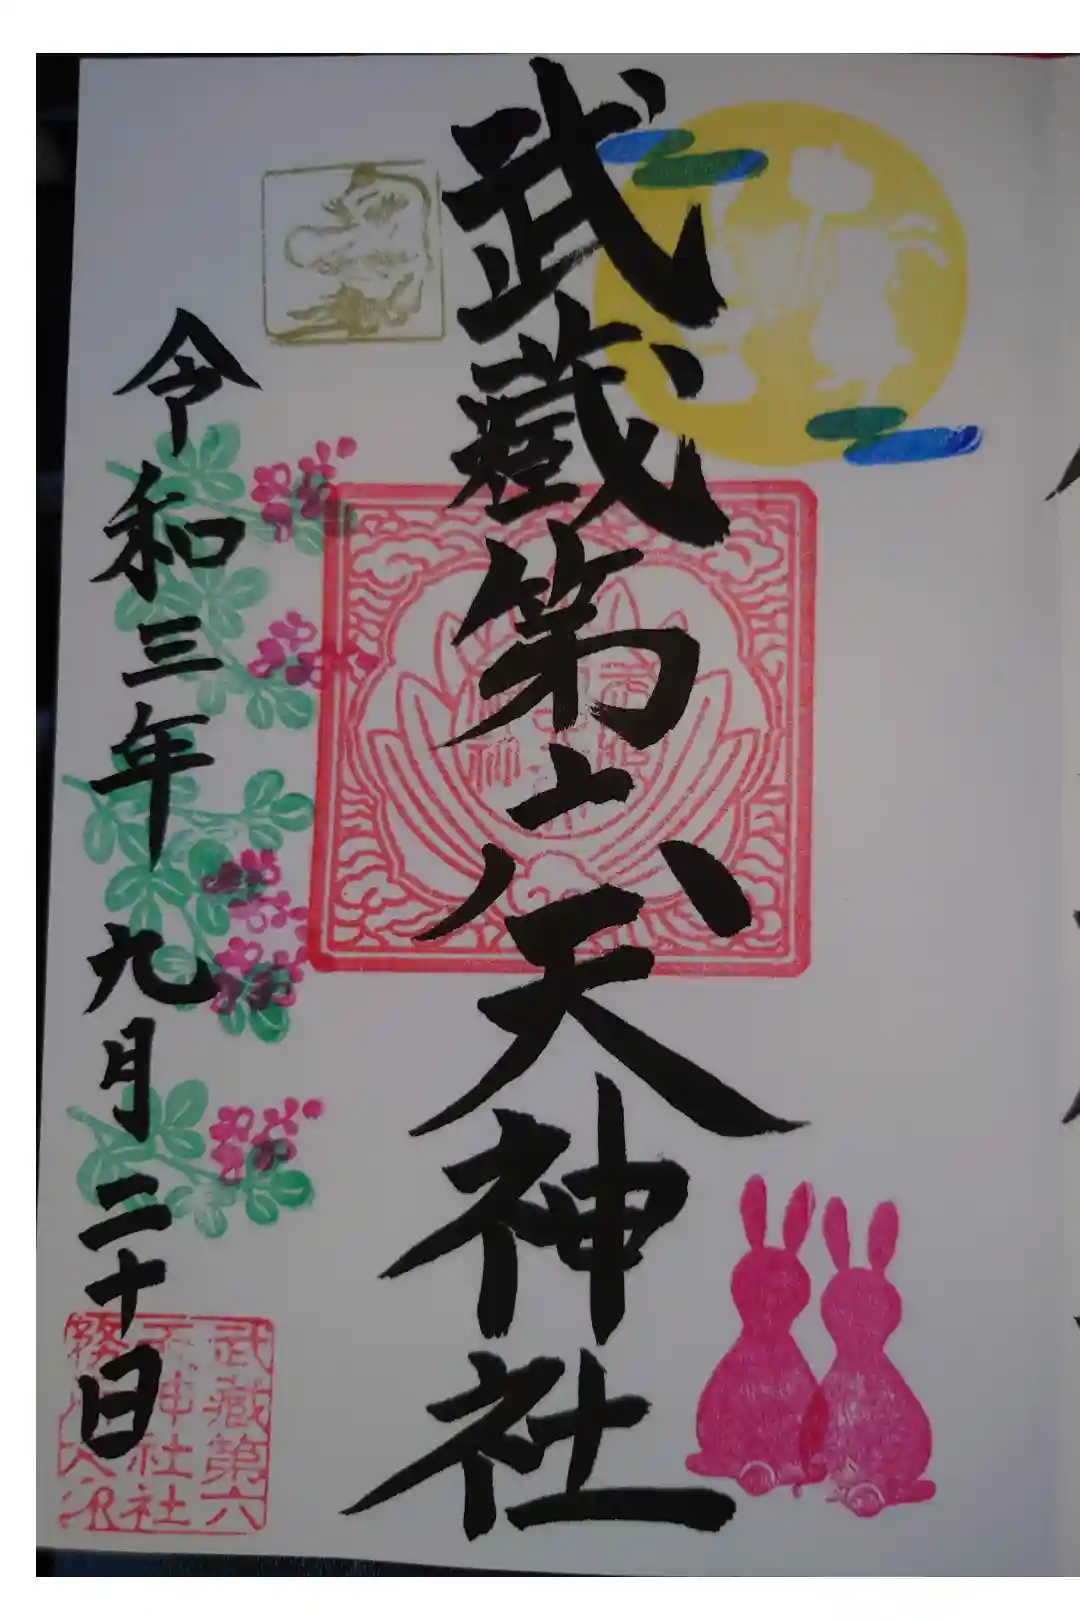 武蔵第六天神社
令和三年九月二十日
武蔵第六
天神社社
務所之印